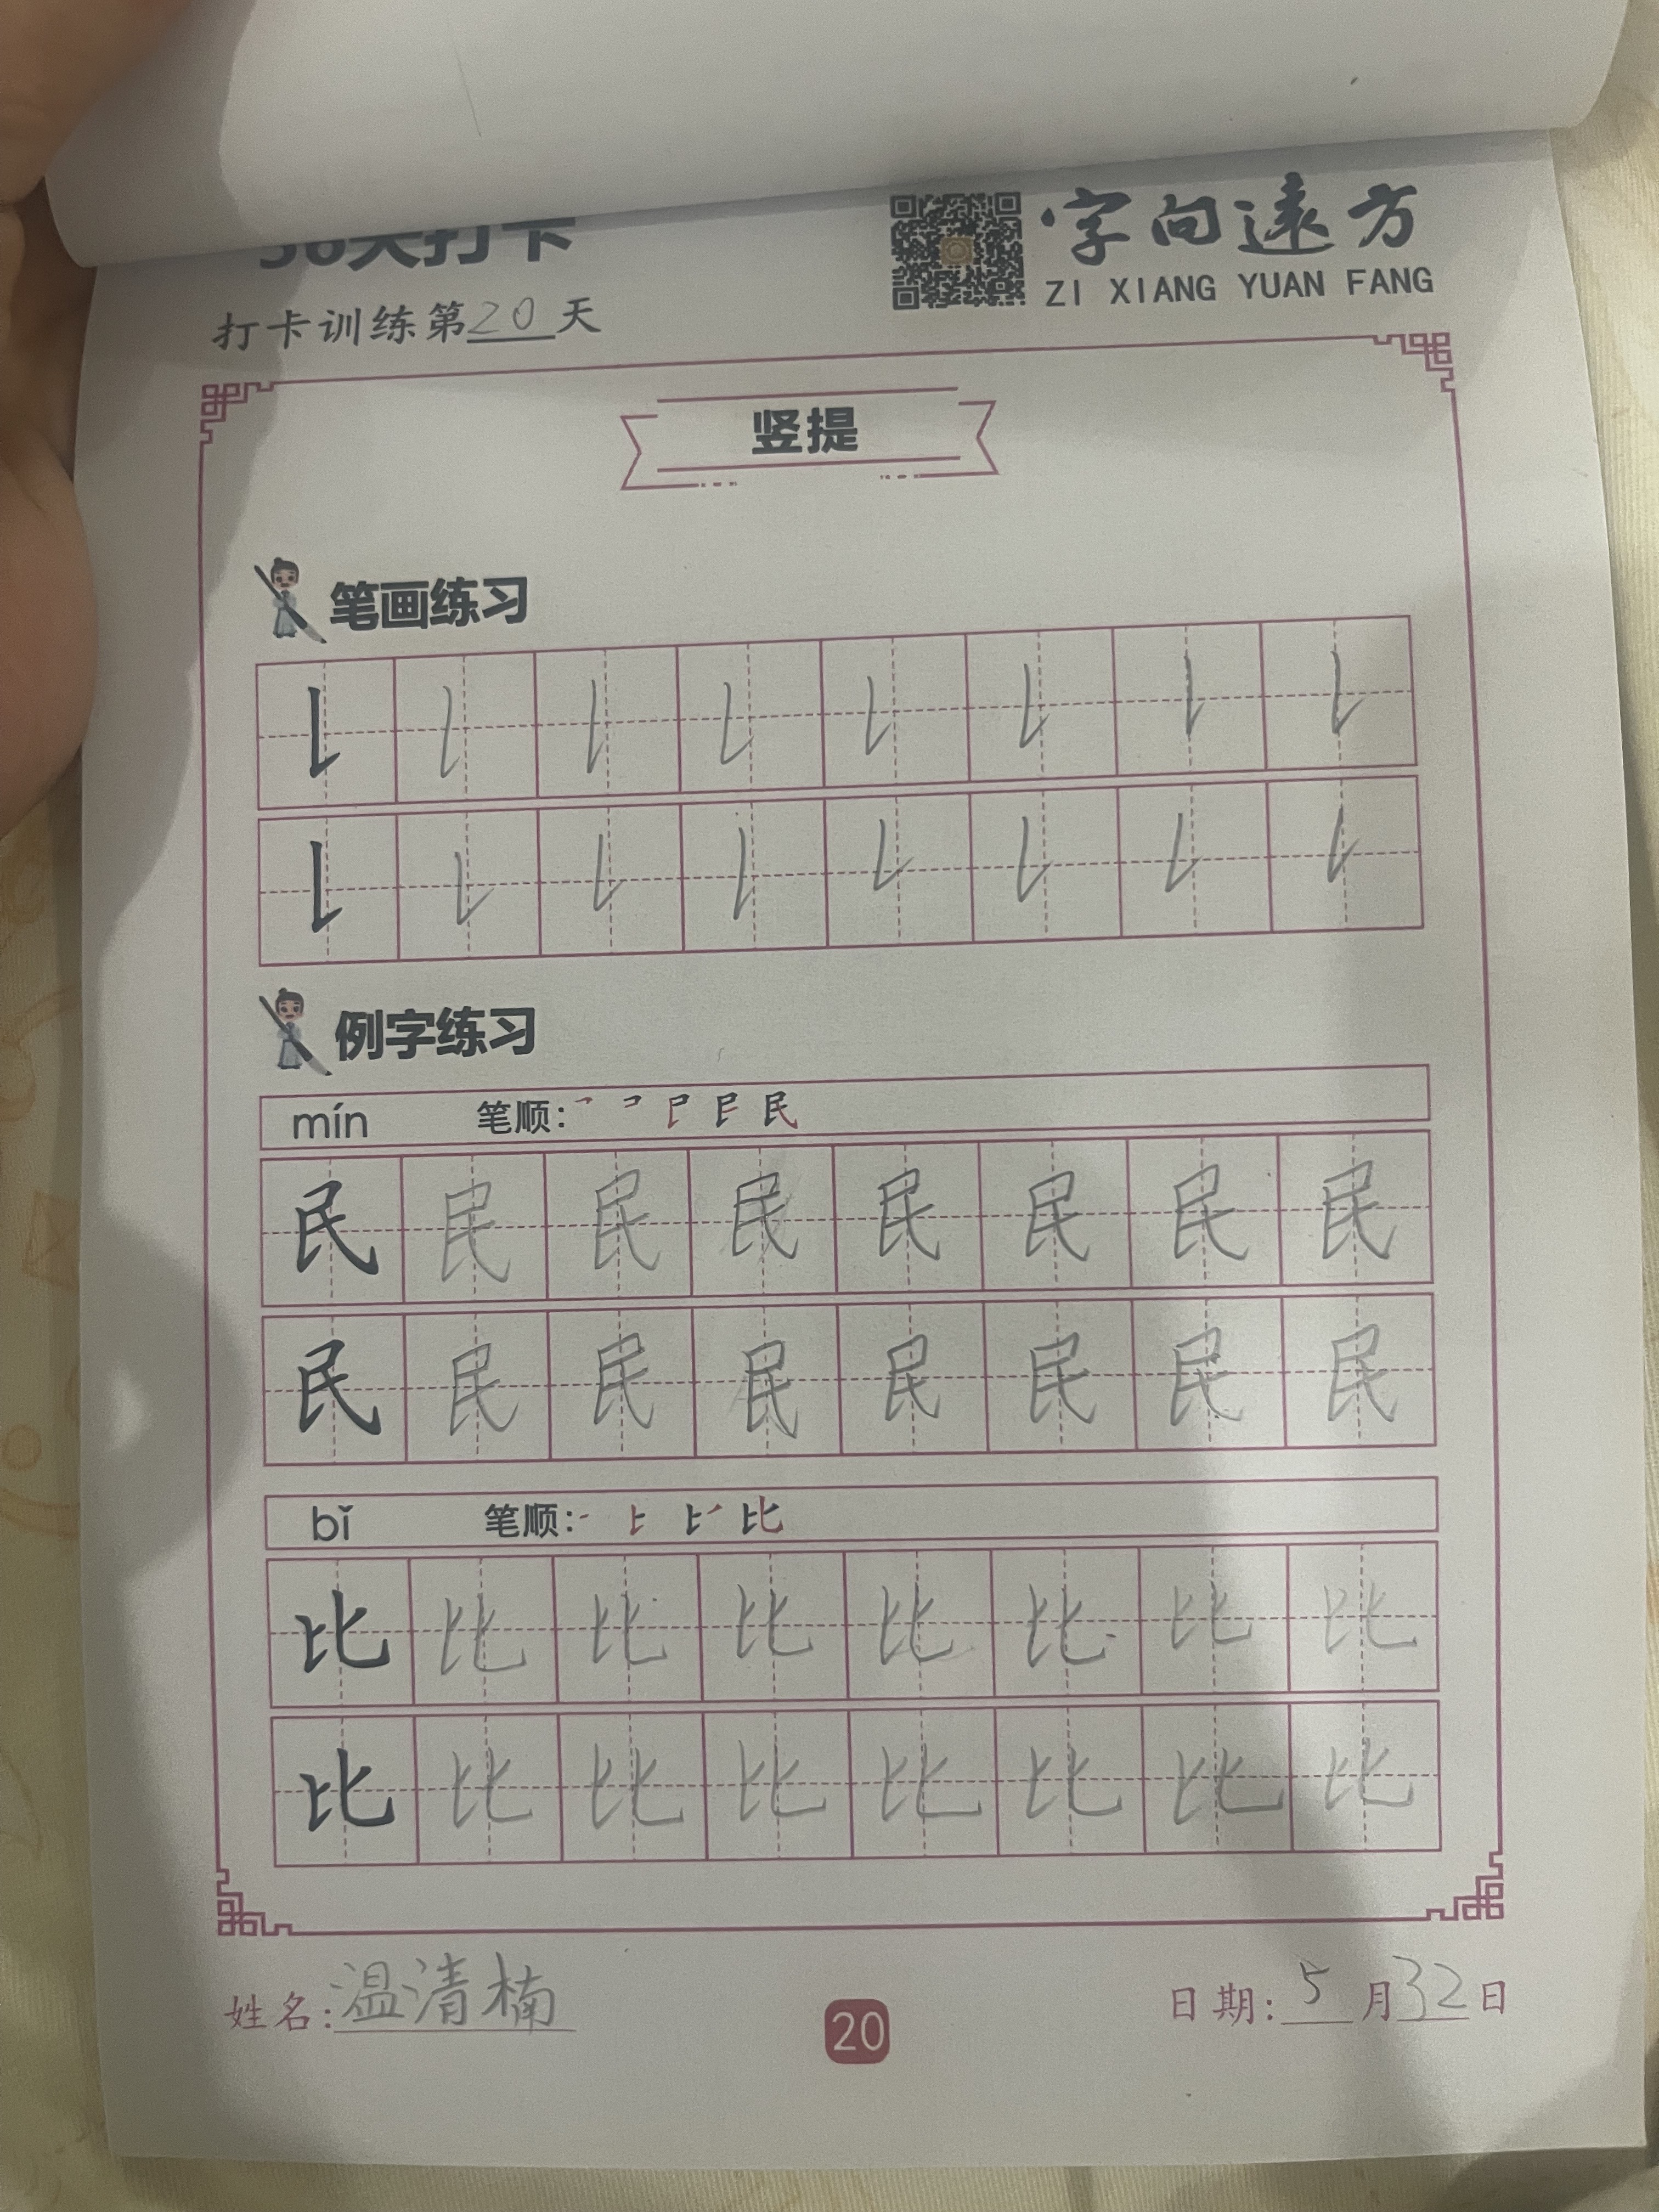 字向远方
ZI XIANG YUAN FANG
打卡训练第20天
竖提
笔画练习
例字练习
mín 笔顺:
民 民 民 民 民 民 民 民
民 民 民 民 民 民 民 民
bǐ 笔顺:
比 比 比 比 比 比 比 比
比 比 比 比 比 比 比 比
姓名:温清楠
20
日期:5月32日